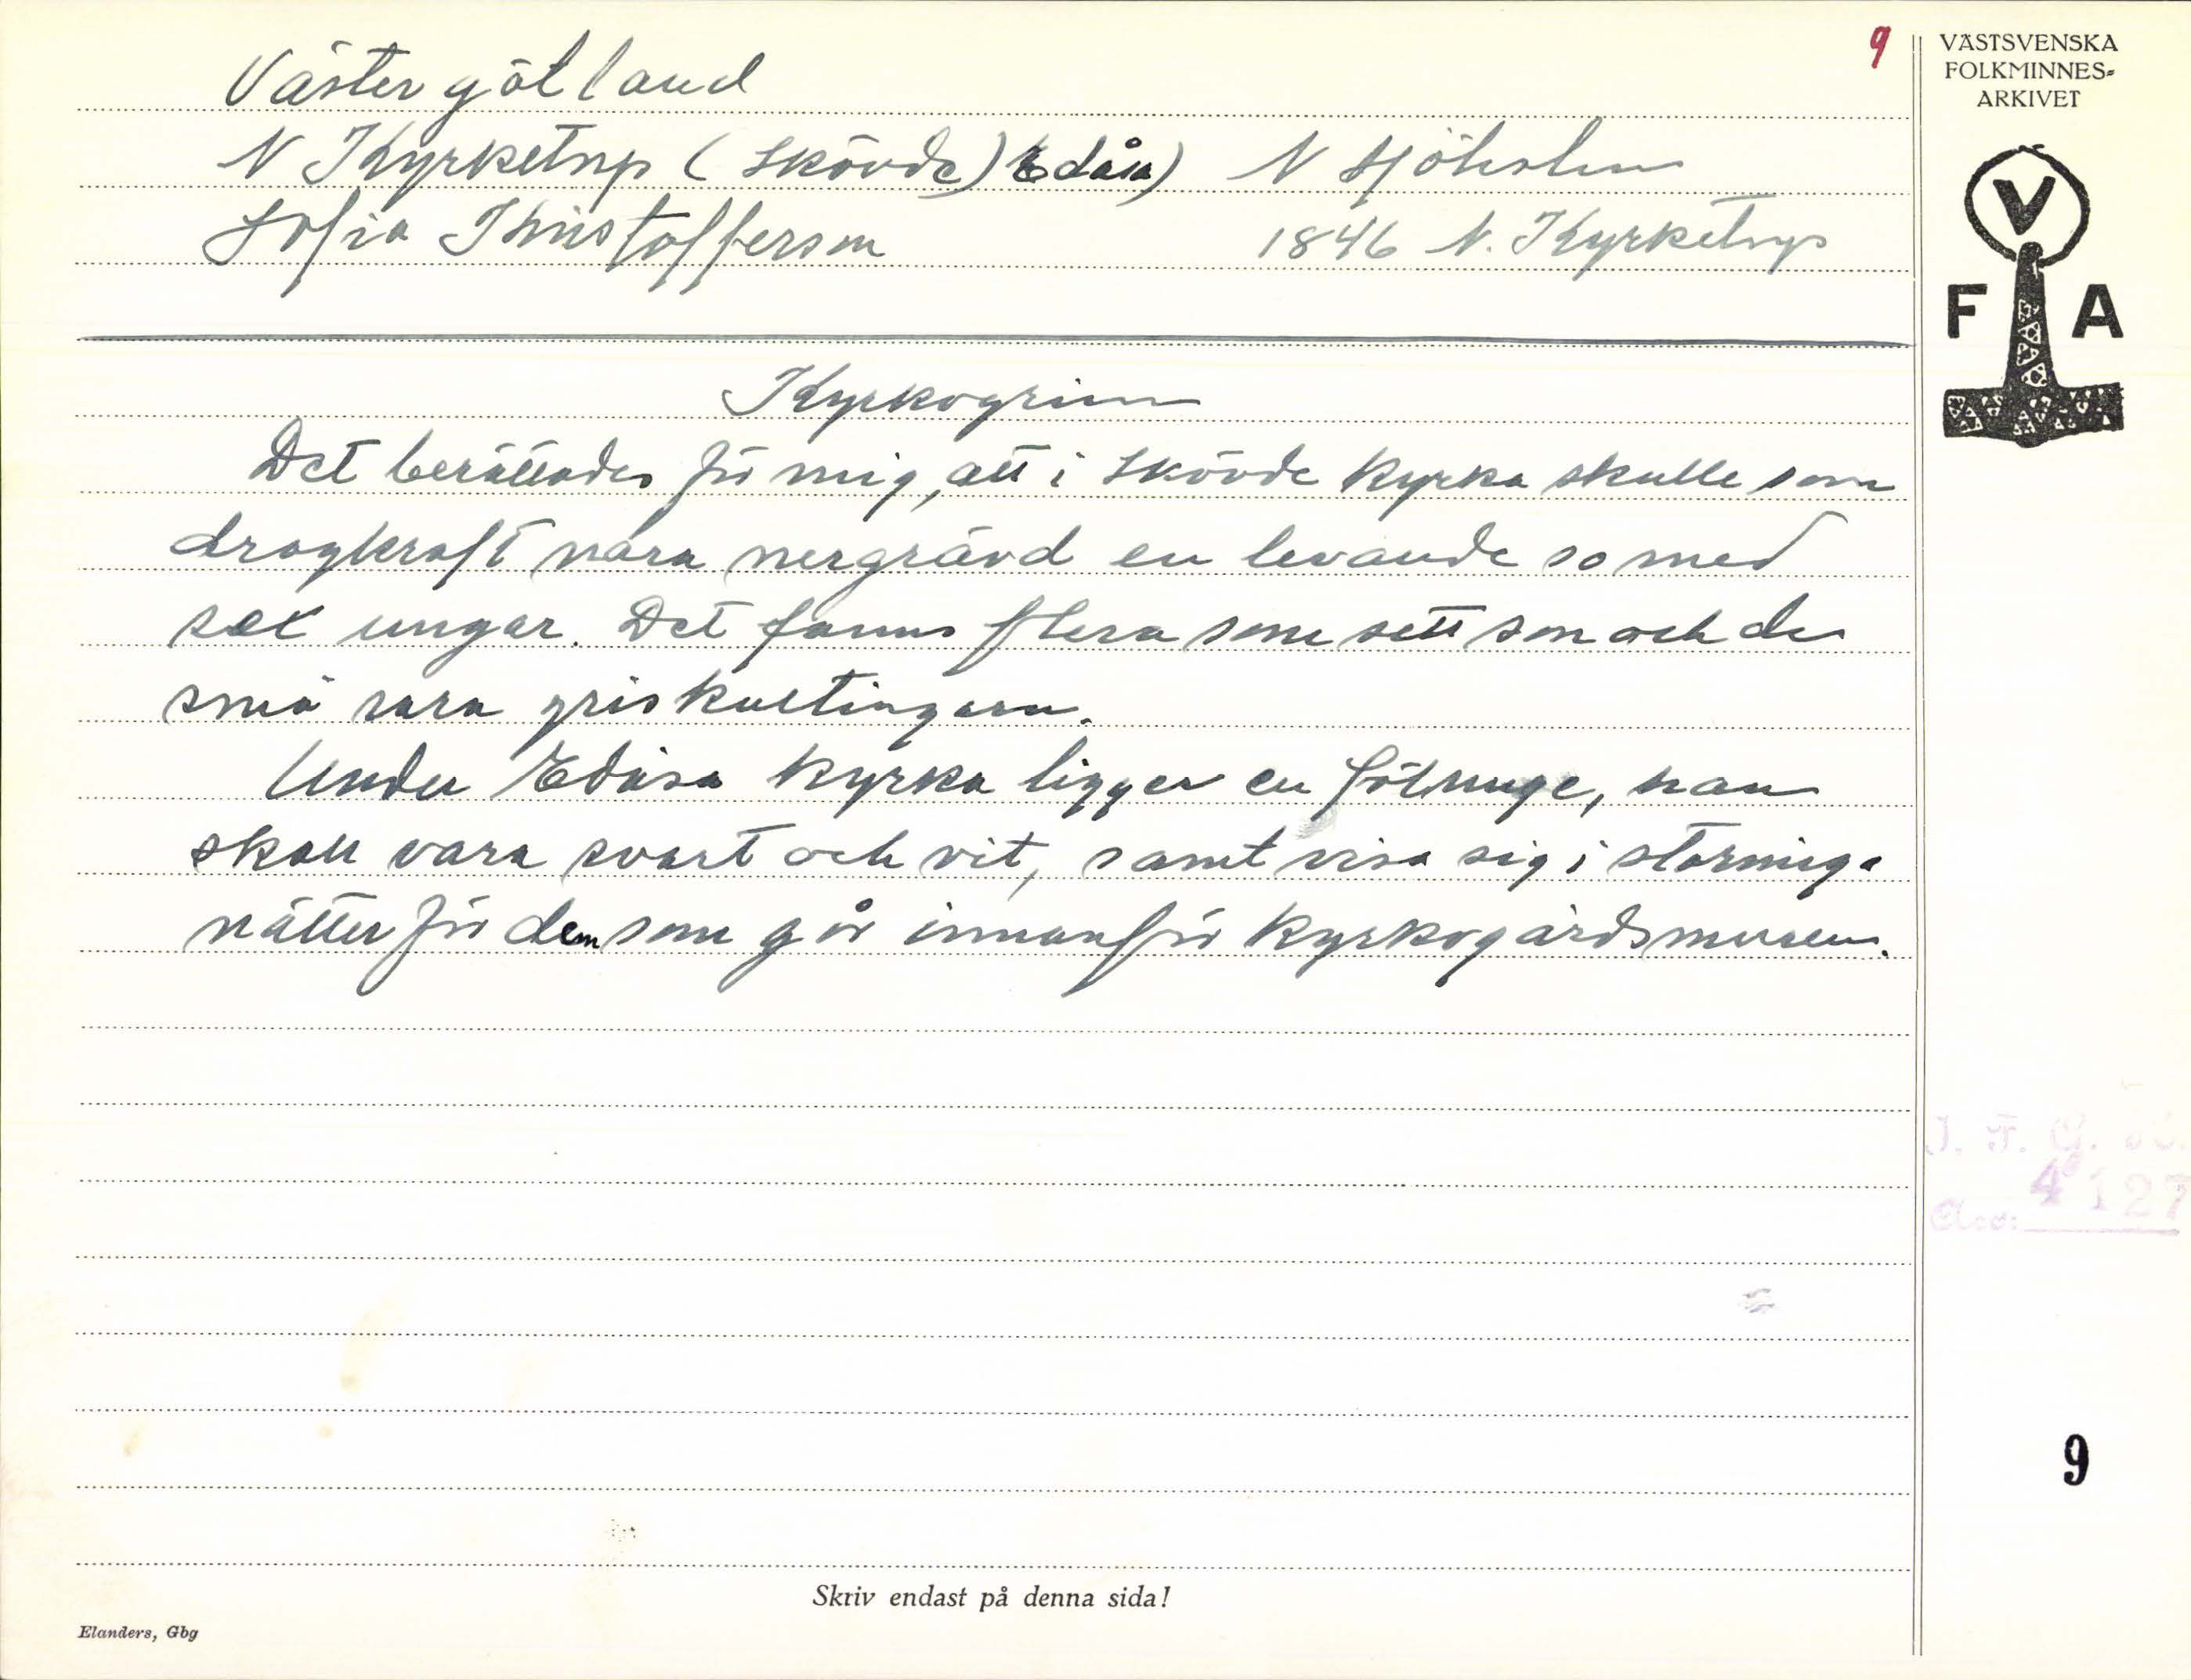 Västergötland
9
N Kyrketorp (Skövde) Edåsa) N Sjöholm
Sofia Kristofferson 1846 N. Kyrketorp
Kyrkogrim
Det berättades för mig, att i Skövde kyrka skulle som
dragkraft vara nergrävd en levande so med
sex ungar. Det fanns flera som sett son och de
små rara griskultingarna.
Under Edåsa kyrka ligger en fölunge, han
skall vara svart och vit, samt visa sig i stormiga
nätter för dem som går innanför kyrkogårdsmuren.
VÄSTSVENSKA
FOLKMINNES-
ARKIVET
V
F A
I. F. G.
Acc: 4127
9
Skriv endast på denna sida!
Elanders, Gbg